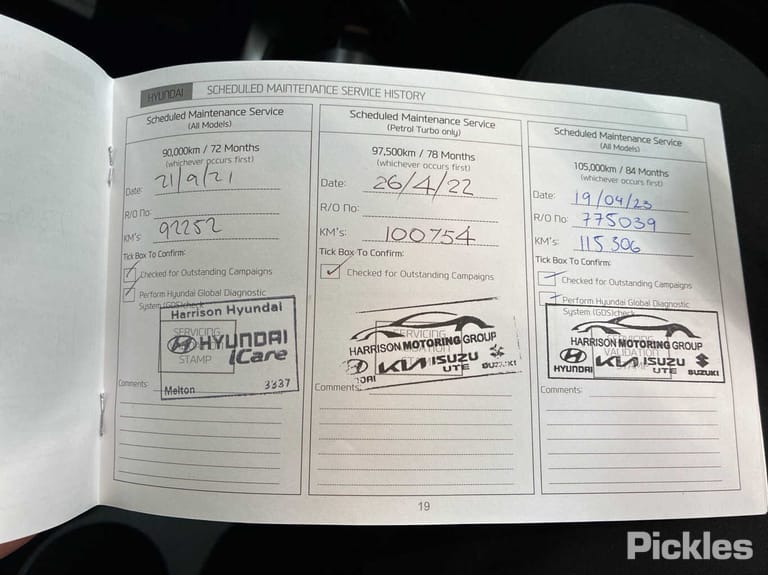 HYUNDAI SCHEDULED MAINTENANCE SERVICE HISTORY
Scheduled Maintenance Service
(All Models)
90,000km / 72 Months
(whichever occurs first)
Date: 21/9/21
R/O No:
KM's: 92252
Tick Box To Confirm:
Checked for Outstanding Campaigns
Perform Hyundai Global Diagnostic
System (GDS)check
Harrison Hyundai
SERVICING
HYUNDAI
iCare
STAMP
Melton 3337
Comments:
Scheduled Maintenance Service
(Petrol Turbo only)
97,500km / 78 Months
(whichever occurs first)
Date: 26/4/22
R/O No:
KM's: 100754
Tick Box To Confirm:
Checked for Outstanding Campaigns
SERVICING
HARRISON MOTORING GROUP
KIA ISUZU
UTE SUZUKI
Comments:
Scheduled Maintenance Service
(All Models)
105,000km / 84 Months
(whichever occurs first)
Date: 19/04/23
R/O No: 775039
KM's: 115306
Tick Box To Confirm:
Checked for Outstanding Campaigns
Perform Hyundai Global Diagnostic
System (GDS)check
HARRISON MOTORING GROUP
VALIDATION
HYUNDAI KIA ISUZU
UTE SUZUKI
Comments:
19
Pickles